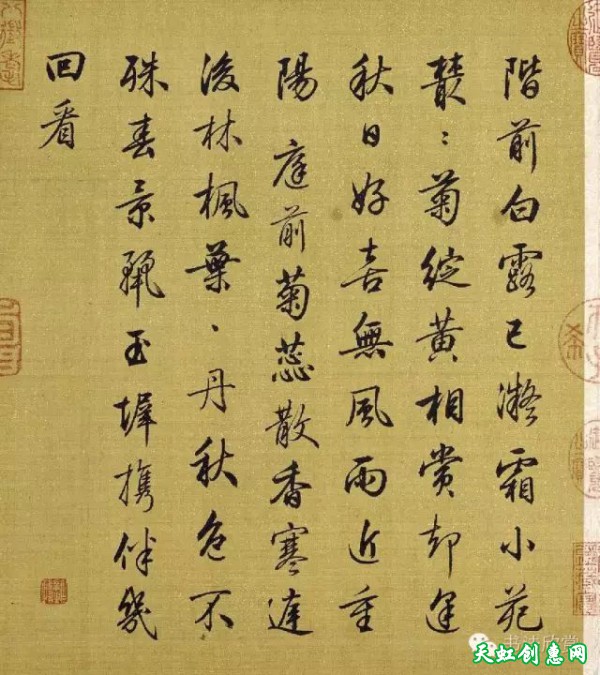 階前白露已凝霜小苑
叢〻菊綻黄相賞却逢
秋日好喜無風雨近重
陽 庭前菊蕊散香寒
後林楓葉丶丹秋色不
殊春景麗玉墀攜伴幾
回看
书法欣赏
天虹创惠网